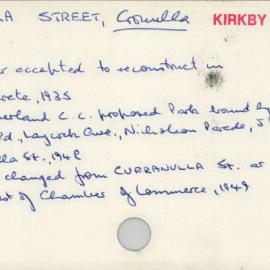 A STREET, Cronulla KIRKBY
r accepted to reconstruct in
rete, 1935
herland C.C. proposed Park bound by
Rd., Laycock Ave., Nicholson Parade, J
lla St., 1948
changed from CURRANULLA St. at
est of Chamber of Commerce, 1949